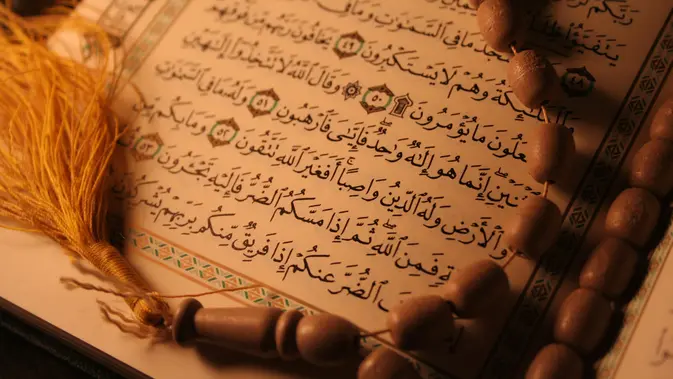 رَبَّكُمْ
يَتَفَيَّؤُا۟ ظِلَٰلُهُۥ
يَسْجُدُ مَا فِى ٱلسَّمَٰوَٰتِ وَمَا فِى ٤٨
وَٱلْمَلَٰٓئِكَةُ وَهُمْ لَا يَسْتَكْبِرُونَ ٤٩ يَخَافُونَ رَبَّهُم مِّن فَوْقِهِمْ
وَيَفْعَلُونَ مَا يُؤْمَرُونَ ۩ ٥٠ ۞ وَقَالَ ٱللَّهُ لَا تَتَّخِذُوٓا۟ إِلَٰهَيْنِ
ٱثْنَيْنِ إِنَّمَا هُوَ إِلَٰهٌ وَٰحِدٌ فَإِيَّٰىَ فَٱرْهَبُونِ ٥١ وَلَهُۥ مَا فِى ٱلسَّمَٰوَٰتِ
وَٱلْأَرْضِ وَلَهُ ٱلدِّينُ وَاصِبًا أَفَغَيْرَ ٱللَّهِ تَتَّقُونَ ٥٢ وَمَا بِكُم مِّن
فَمِنَ ٱللَّهِ ثُمَّ إِذَا مَسَّكُمُ ٱلضُّرُّ فَإِلَيْهِ تَجْـَٔرُونَ ٥٣
ٱلضُّرَّ عَنكُمْ إِذَا فَرِيقٌ مِّنكُم بِرَبِّهِمْ يُشْرِكُونَ